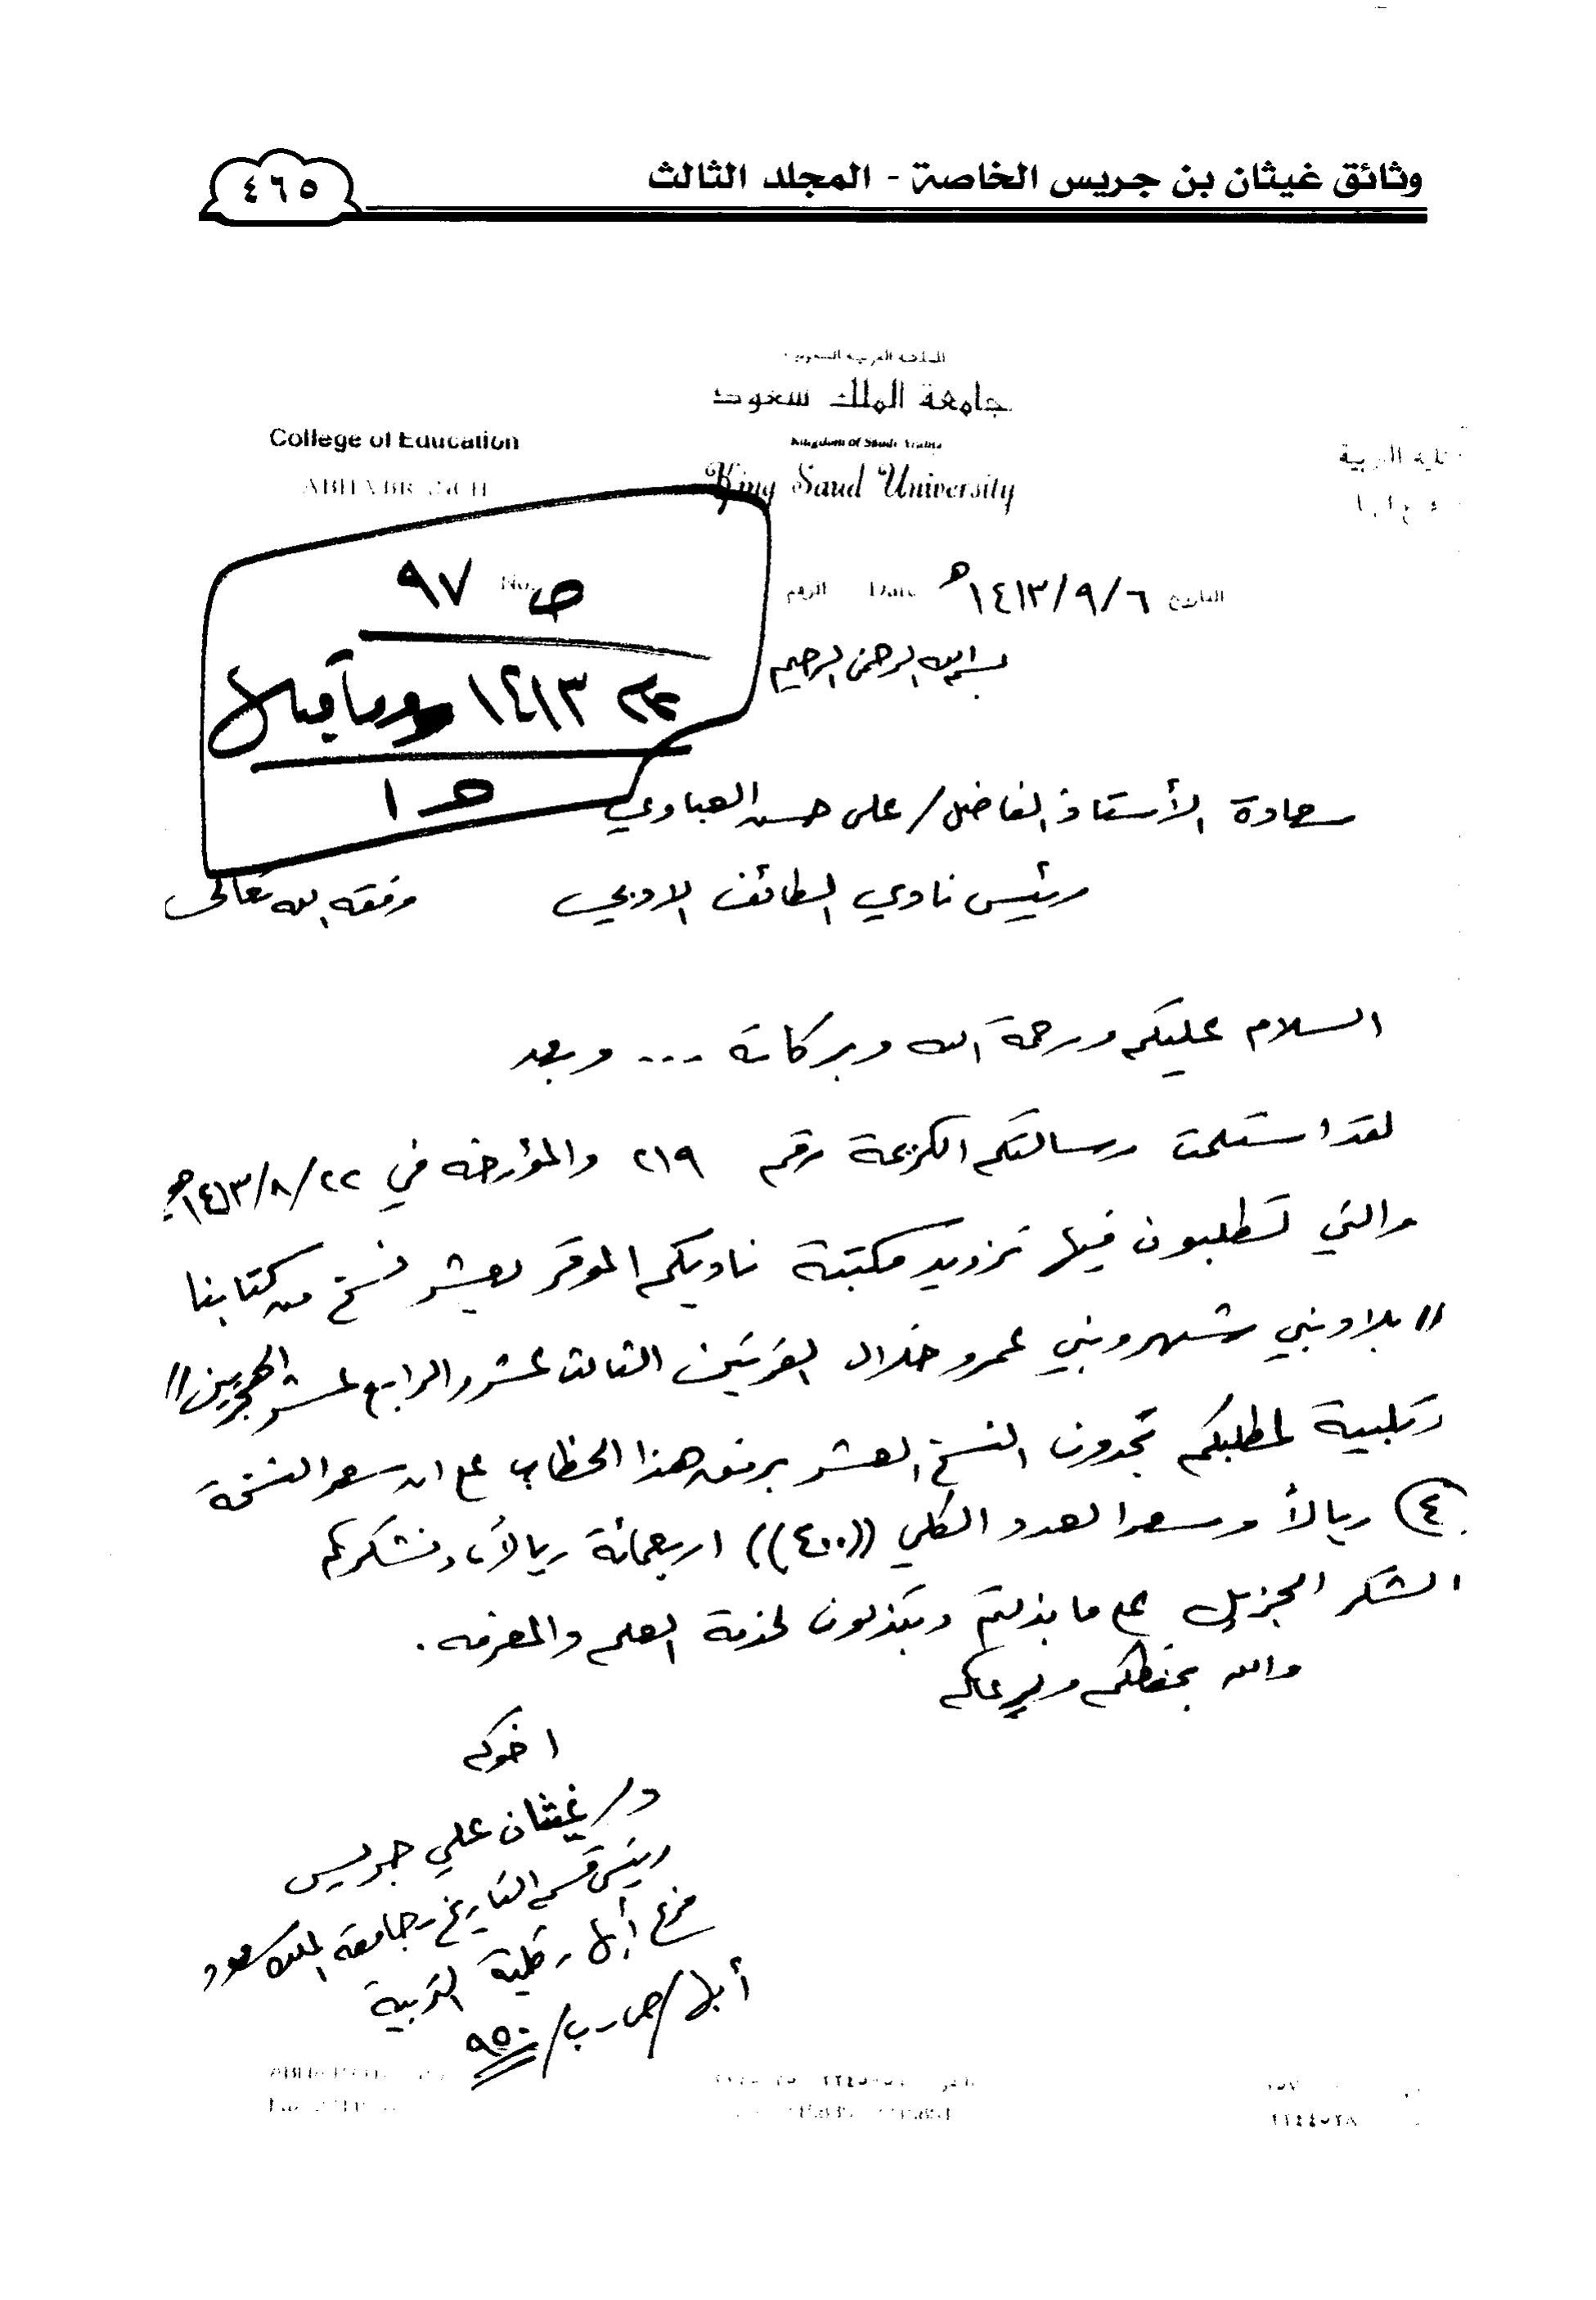 وثائق غيثان بن جريس الخاصة - المجلد الثالث
٤٦٥
المملكة العربية السعودية
جامعة الملك سعود
Kingdom of Saudi Arabia
King Saud University
College of Education
ABHA BRANCH
كلية التربية
التاريخ ١٤١٣/٩/٦هـ Date الرقم No.
ص ٩٧
١٤١٣ وما قبل
هـ ١
بسم الله الرحمن الرحيم
سعادة الأستاذ الفاضل / علي حسن العبادي
رئيس نادي الطائف الادبي وفقه الله تعالى
السلام عليكم ورحمة الله وبركاته ... وبعد
لقد استلمت رسالتكم الكريمة رقم ٢١٩ والمؤرخة في ١٤١٣/٨/٢٢هـ
والتي تطلبون فيها تزويد مكتبة ناديكم الموقر بعشر نسخ من كتابنا
// بلاد بني شهر وبني عمرو خلال القرنين الثالث عشر والرابع عشر الهجريين //
وتلبية لمطلبكم تجدون النسخ العشر برفق هذا الخطاب مع ان سعر النسخة
(٤٠) ريالاً وسعر العدد الكلي ((٤٠٠)) اربعمائة ريالاً، ونشكركم
الشكر الجزيل على ما بذلتم وتبذلون لخدمة العلم والمعرفه .
والله يحفظكم ويرعاكم
اخوكم
د/ غيثان علي جريس
رئيس قسم التاريخ - جامعة الملك سعود
فرع أبها - كلية التربية
أبها / ص - ب / ٩٥٠